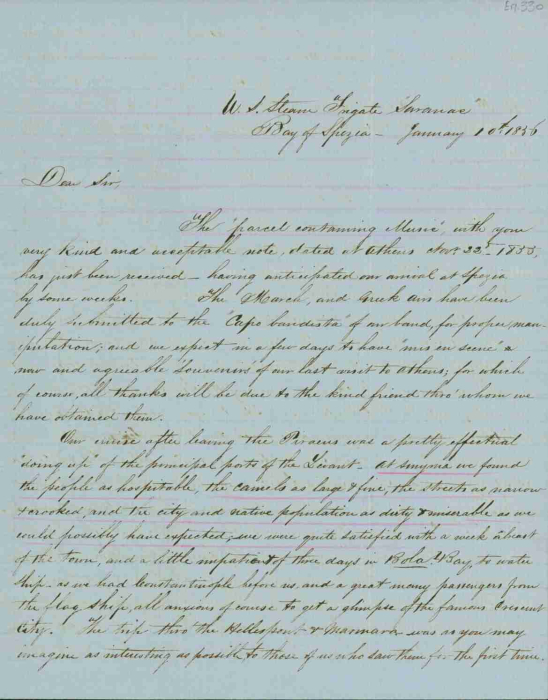 £9.530
U. S. Steam Frigate "Saranac"
Bay of Spezia - January 10th 1856
Dear Sir,
The "parcel containing Music", with your
very kind and acceptable note, dated at Athens Nov. 22d 1855,
has just been received - having anticipated our arrival at Spezia
by some weeks. The March, and Greek Airs have been
duly submitted to the "Capo bandista" of our band, for proper man-
ipulation; and we expect in a few days to have "mis en scene" a
new and agreeable Souvenirs of our last visit to Athens; for which
of course, all thanks will be due to the kind friend thro' whom we
have obtained them.
Our cruise after leaving the Piraeus was a pretty effectual
"doing up" of the principal ports of the Levant - At Smyrna we found
the people as hospitable, the camels as large & fine, the streets as narrow
& crooked, and the city and native population as dirty & miserable as we
could possibly have expected; we were quite satisfied with a week abreast
of the town, and a little impatient of three days in Bay, to water
ship - as we had Constantinople before us, and a great many passengers from
the flag ship, all anxious of course to get a glimpse of the famous Crescent
City. The trip thro the Hellespont & Marmara was as you may
imagine as interesting as possible to those of us who saw them for the first time.